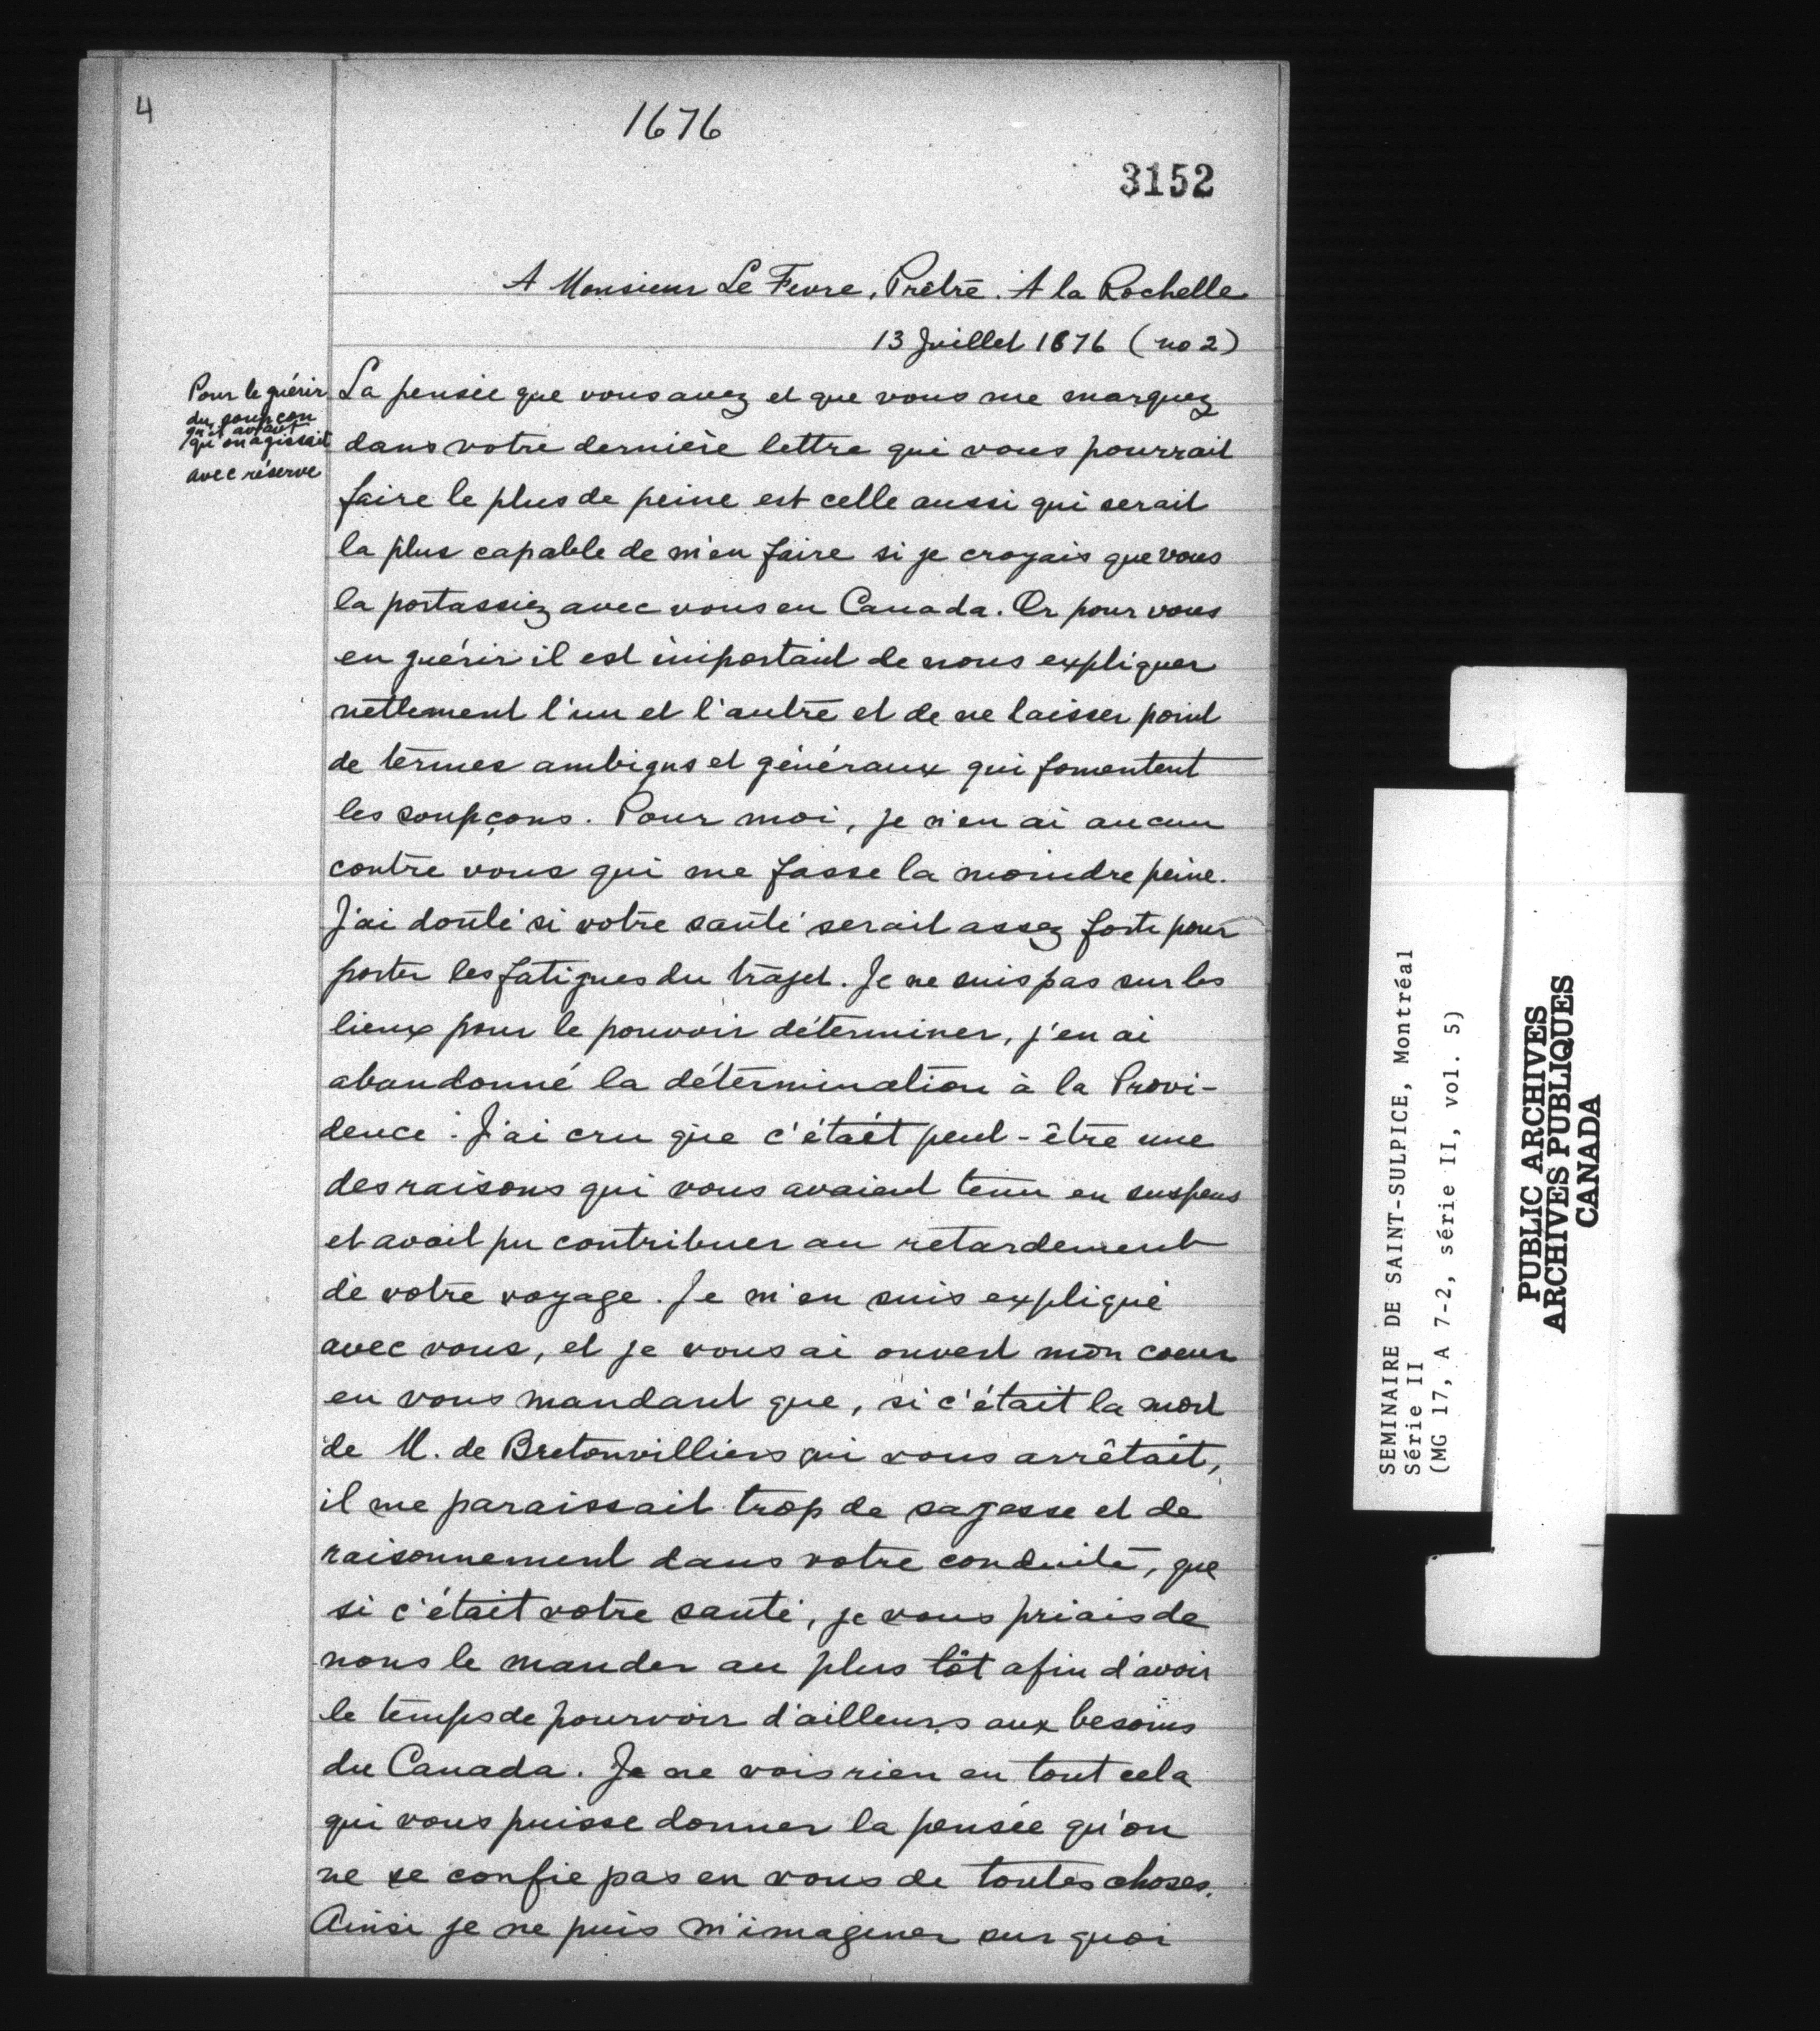 4
1676
3152
A Monsieur Le Fevre, Prêtre. A la Rochelle
13 Juillet 1676 (no 2)
Pour le guérir
du soupçon
qu'il avait
qu'on agissait
avec réserve
La pensée que vous avez et que vous me marquez
dans votre dernière lettre qui vous pourrait
faire le plus de peine est celle aussi qui serait
la plus capable de m'en faire si je croyais que vous
la portassiez avec vous en Canada. Or pour vous
en guérir il est important de nous expliquer
nettement l'un et l'autre et de ne laisser point
de termes ambigus et généraux qui fomentent
les soupçons. Pour moi, je n'en ai aucun
contre vous qui me fasse la moindre peine.
J'ai douté si votre santé serait assez forte pour
porter les fatigues du trajet. Je ne suis pas sur les
lieux pour le pouvoir déterminer, j'en ai
abandonné la détermination à la Provi-
dence. J'ai cru que c'était peut-être une
des raisons qui vous avaient tenu en suspens
et avait pu contribuer au retardement
de votre voyage. Je m'en suis expliqué
avec vous, et je vous ai ouvert mon coeur
en vous mandant que, si c'était la mort
de M. de Bretonvilliers qui vous arrêtait,
il me paraissait trop de sagesse et de
raisonnement dans votre conduite, que
si c'était votre santé, je vous priais de
nous le mander au plus tôt afin d'avoir
le temps de pourvoir d'ailleurs aux besoins
du Canada. Je ne vois rien en tout cela
qui vous puisse donner la pensée qu'on
ne se confie pas en vous de toutes choses.
Ainsi je ne puis m'imaginer sur quoi
SEMINAIRE DE SAINT-SULPICE, Montréal
Série II
(MG 17, A 7-2, série II, vol. 5)
PUBLIC ARCHIVES
ARCHIVES PUBLIQUES
CANADA